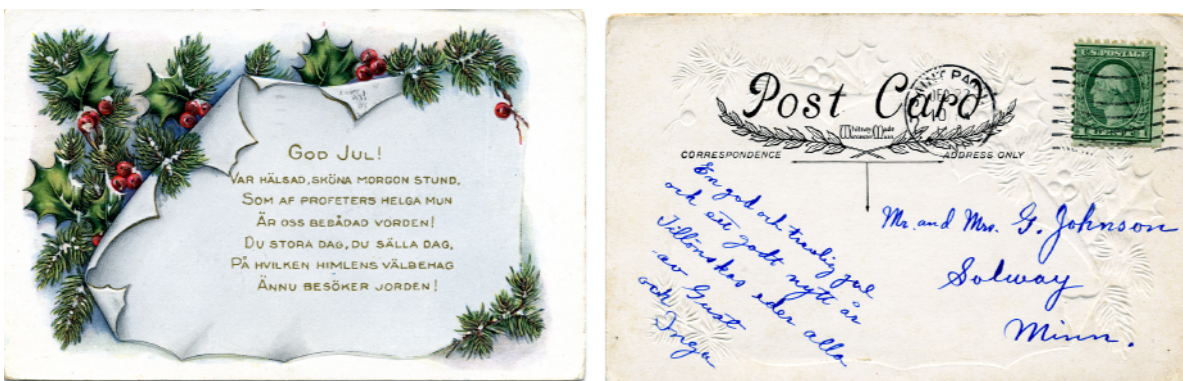 GOD JUL!
VAR HÄLSAD, SKÖNA MORGON STUND,
SOM AF PROFETERS HELGA MUN
ÄR OSS BEBÅDAD VORDEN!
DU STORA DAG, DU SÄLLA DAG,
PÅ HVILKEN HIMLENS VÄLBEHAG
ÄNNU BESÖKER JORDEN!
U.S. POSTAGE
Post Card
Whitney Made
Worcester Mass
CORRESPONDENCE
ADDRESS ONLY
En god och traslig jul
och ett godt nytt år
Tillönskas eder alla
av Gust
och
Inga
Mr. and Mrs. G. Johnson
Solway
Minn.